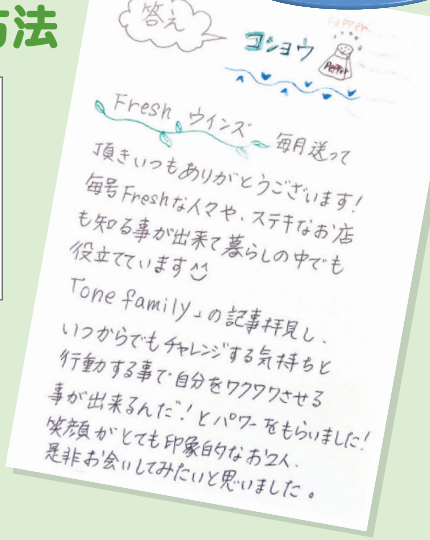 方法
答え
コショウ
Pepper
PePPer
Fresh ウインズ 毎月送って
頂きいつもありがとうございます!
毎号Freshな人々や、ステキなお店
も知る事が出来て暮らしの中でも
役立てています
「one family」の記事拝見し、
いつからでもチャレンジする気持ちと
行動する事で自分をワクワクさせる
事が出来るんだ!とパワーをもらいました!
笑顔がとても印象的なお2人、
是非お会いしてみたいと思いました。